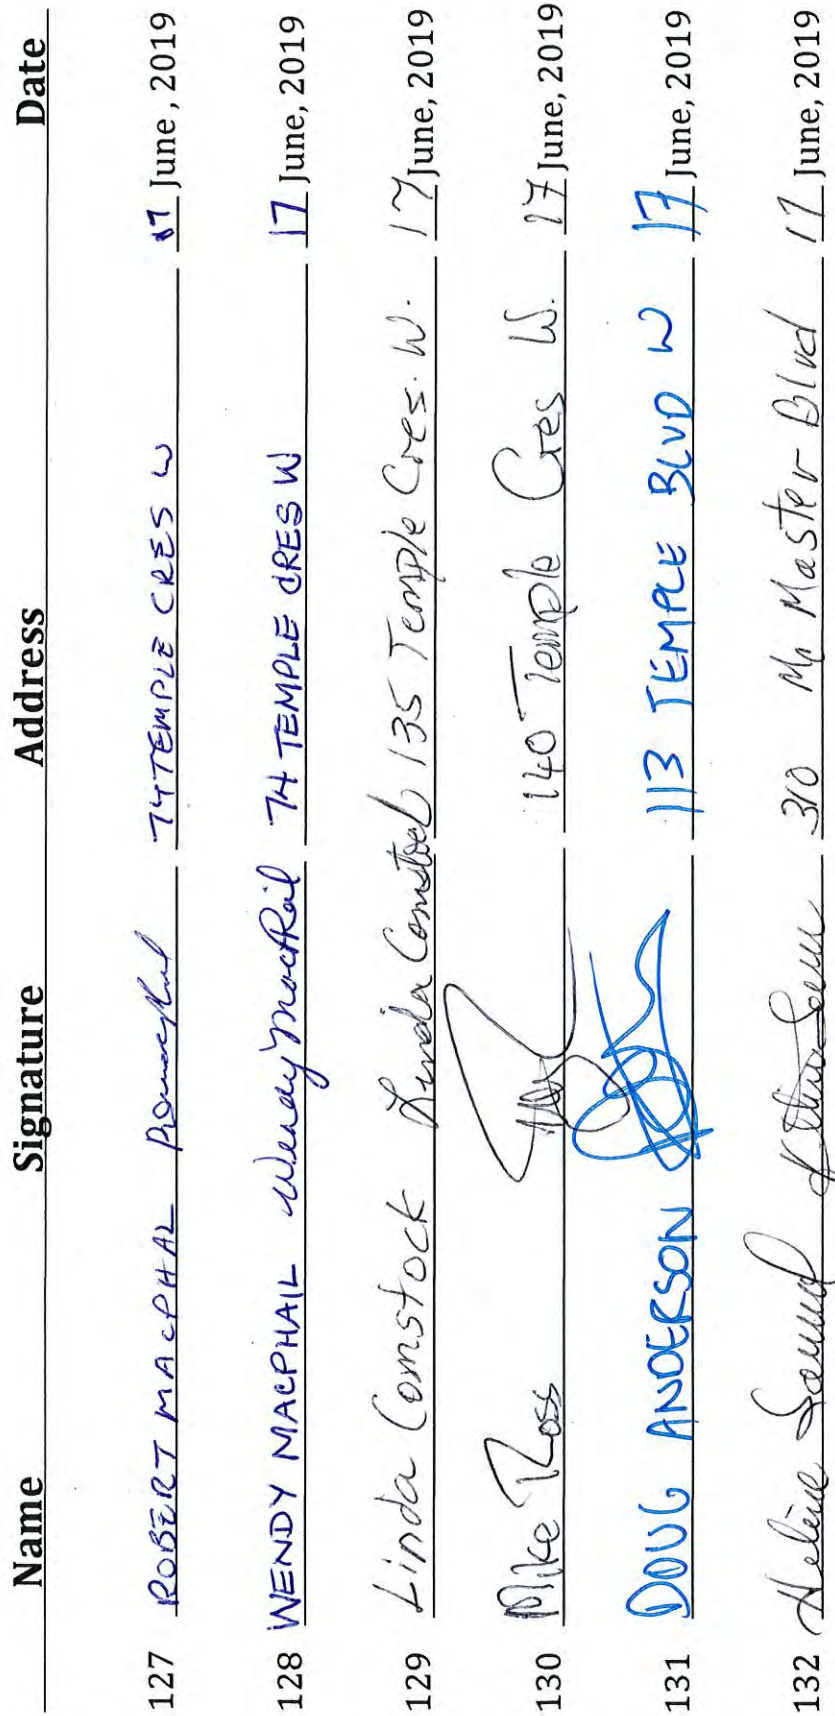 Name Signature Address Date
127 ROBERT MACPHAL 74 TEMPLE CRES W 17 June, 2019
128 WENDY MACPHAIL Wendy MacPhail 74 TEMPLE CRES W 17 June, 2019
129 Linda Comstock Linda Comstock 135 Temple Cres. W. 17 June, 2019
130 Mike Ross 140 Temple Cres W. 17 June, 2019
131 DOUG ANDERSON 113 TEMPLE BLVD W 17 June, 2019
132 Hélène 310 Master Blvd 17 June, 2019